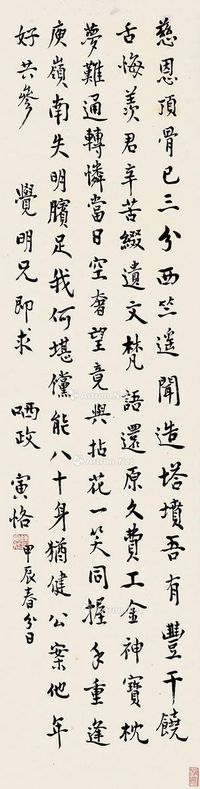 慈恩頂骨已三分西竺遥聞造塔墳吾有豐干饒
舌悔羨君辛苦綴遺文梵語還原久費工金神寶枕
夢難通轉憐當日空奢望竟與拈花一笑同握手重逢
庾嶺南失明臏足我何堪儻能八十身猶健公案他年
好共參
覺明兄即求
哂政
寅恪
甲辰春分日